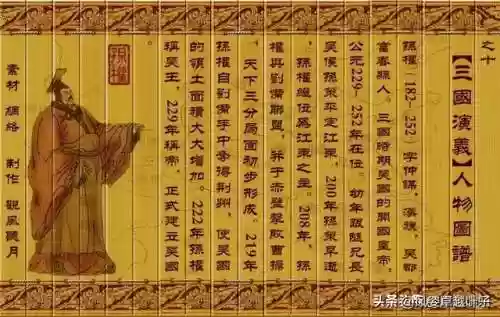 之十
【三國演義】人物圖譜
孫權（182-252）字仲謀，漢族，吳郡
富春縣人。三國時期吳國的開國皇帝。
公元229-252年在位。幼年跟隨兄長
吳侯孫策平定江東，200年孫策早逝
，孫權繼位為江東之主。208年，孫
權與劉備聯盟，并于赤壁擊敗曹操
，天下三分局面初步形成。219年
孫權自劉備手中奪得荊州，使吳國
的領土面積大大增加。222年孫權
稱吳王，229年稱帝，正式建立吳國
素材 網絡 制作 觀風聽月